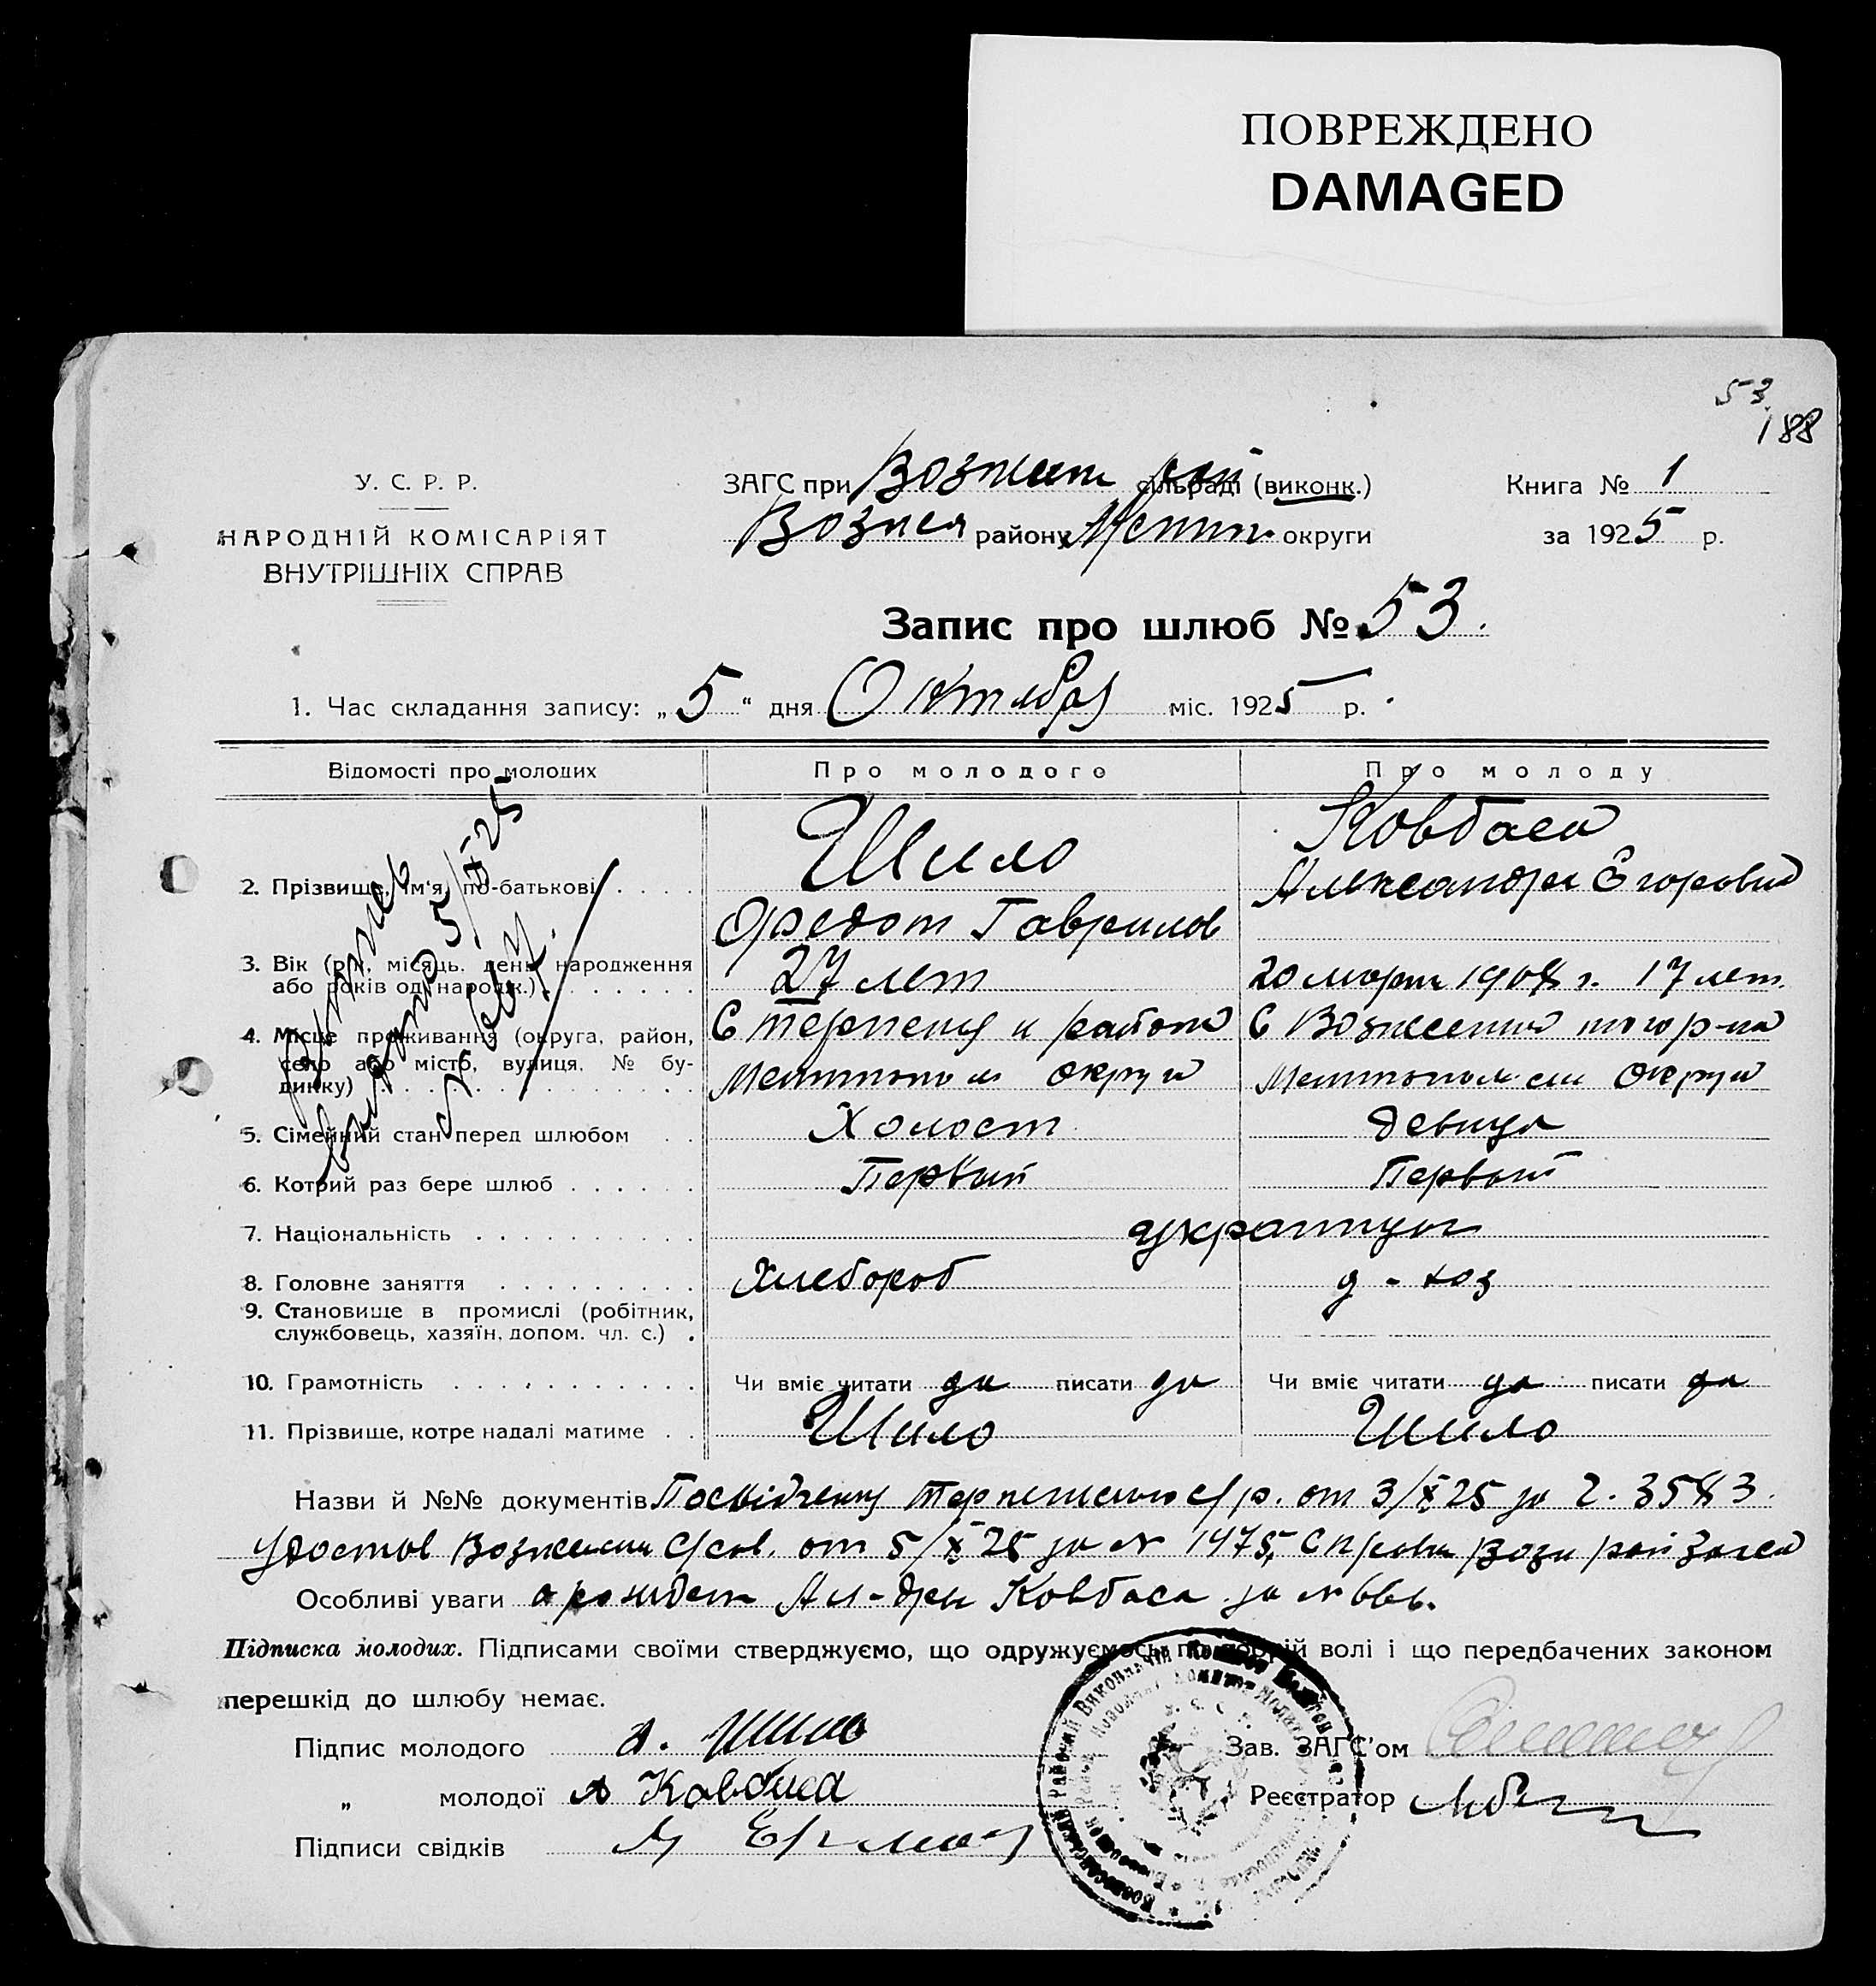 ПОВРЕЖДЕНО
DAMAGED
53
188
У. С. Р. Р.
НАРОДНІЙ КОМІСАРІЯТ
ВНУТРІШНІХ СПРАВ
ЗАГС при сільраді (виконк.)
району округи
Книга № 1
за 1925 р.
Запис про шлюб № 53.
1. Час складання запису: „5“ дня Октября міс. 1925 р.
Відомості про молодих
Про молодого
Про молоду
2. Прізвище, ім'я, по-батькові
Шило
Федот Гаврилов
Ковбаса
Александра Егоровна
3. Вік (рік, місяць, день народження
або років од народж.)
27 лет
20 марта 1908 г. 17 лет.
4. Місце проживання (округа, район,
село або місто, вулиця, № бу-
динку)
С Терпения и района
Мелитопол округи
С Вознесенка того р-на
Мелитополь округи
5. Сімейний стан перед шлюбом
Холост
девица
6. Котрий раз бере шлюб
Первый
Первый
7. Національність
украинцы
8. Головне заняття
Хлебороб
д-хоз
9. Становище в промислі (робітник,
службовець, хазяїн, допом. чл. с.)
10. Грамотність
Чи вміє читати да писати да
Чи вміє читати да писати да
11. Прізвище, котре надалі матиме
Шило
Шило
выдано 5/X 25
Назви й №№ документів Посвідчення с/р. от 3/X 25 за 3583.
Удостов с/сов. от 5/X 25 за № 1475, Справка Возн рай Загса
Особливі уваги о рожден Ал-дры Ковбаса за № 666.
Підписка молодих. Підписами своїми стверджуємо, що одружуємось по добрій волі і що передбачених законом
перешкід до шлюбу немає.
Підпис молодого Шило
„ молодої А Ковбаса
Підписи свідків
Зав. ЗАГС'ом
Реєстратор